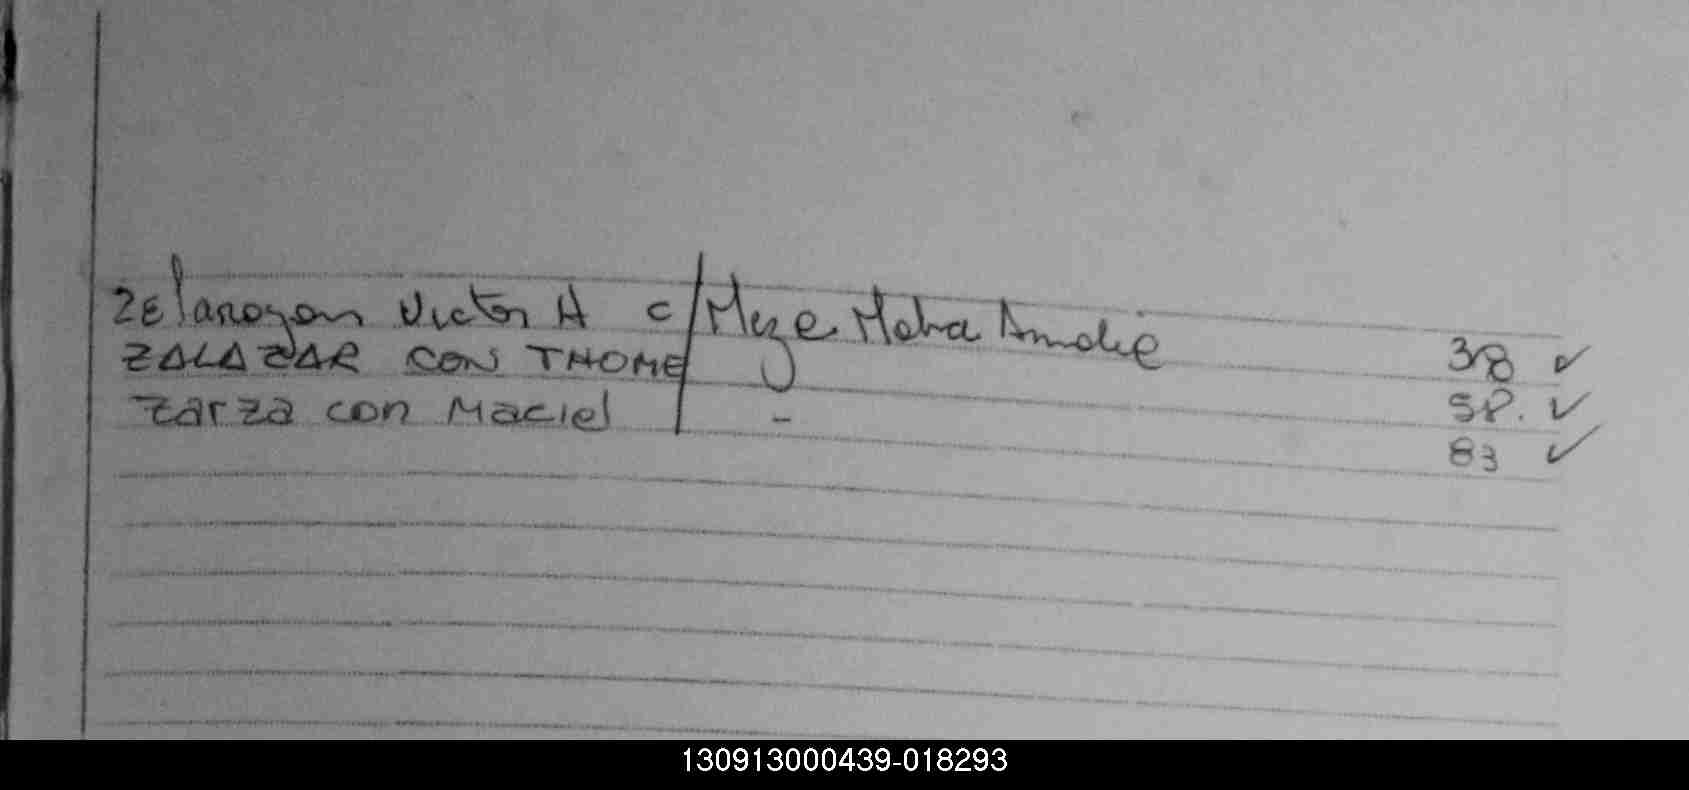 Zelarayan Victor H c/ Meze Maria Amalia 38 ✓
ZALAZAR CON THOME 58. ✓
Zarza con Maciel - 83 ✓
130913000439-018293